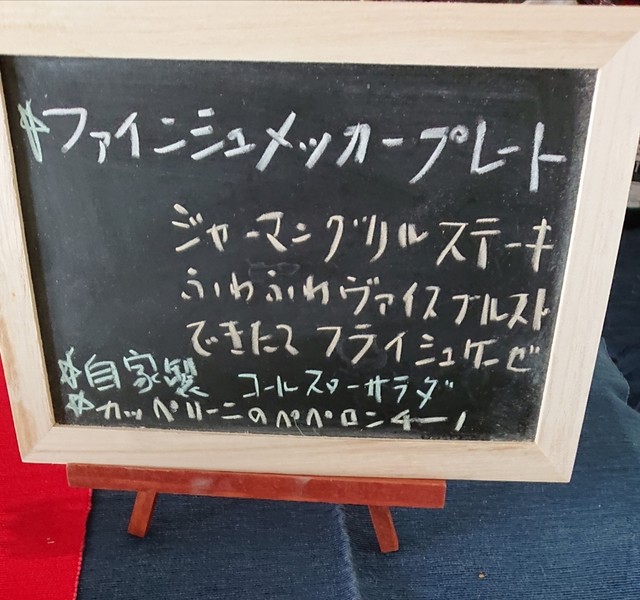 ☆ファインシュメッカープレート
ジャーマングリルステーキ
ふわふわヴァイスブルスト
できたてフライシュケーゼ
☆自家製 コールスローサラダ
☆カッペリーニのペペロンチーノ